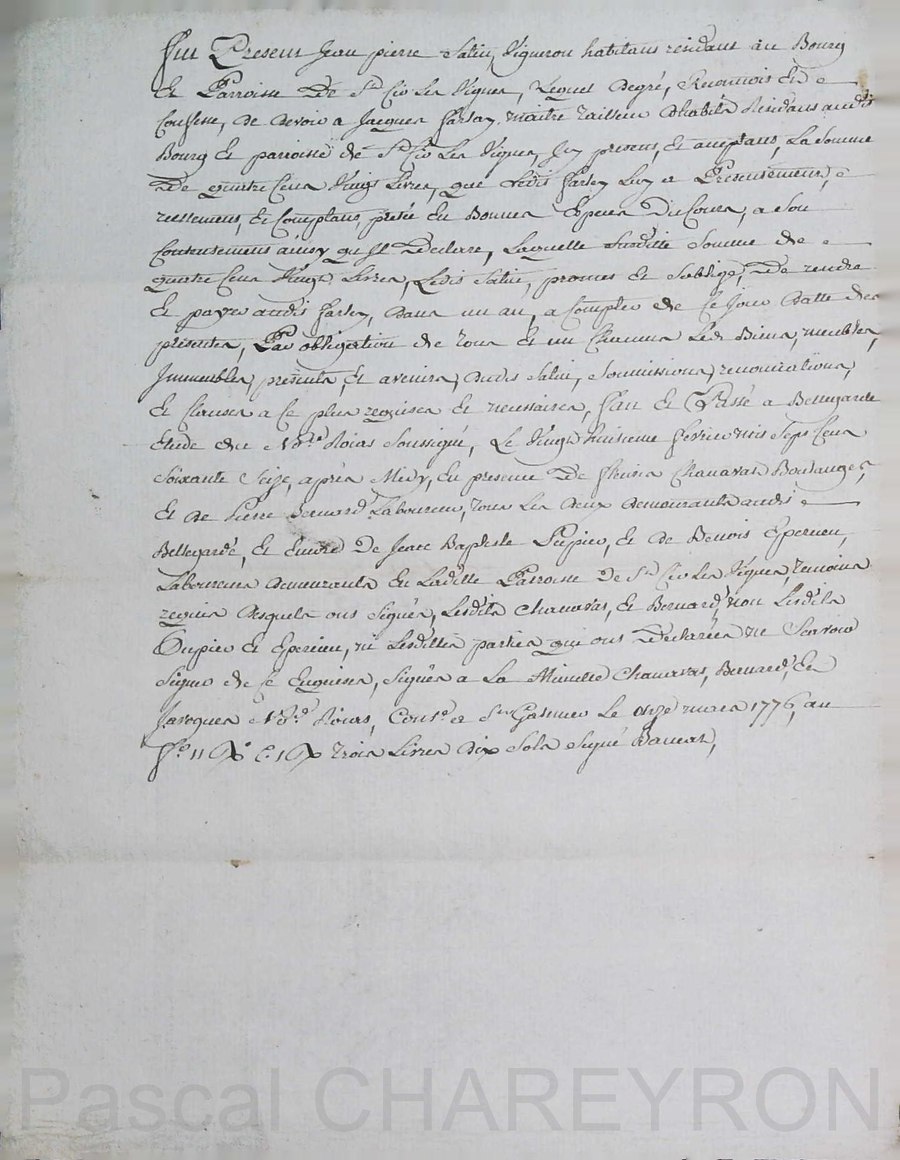 Fut Present Jean pierre Vigneron habitant residant au Bourg
Et Parroisse De St Cir Les Vignes, Lequel Degré, Reconnois Et
Confesse, de devoir a Jacques maitre Tailleur D'habits Residant audit
Bourg Et parroisse de St Cir Les Vignes, Icy present, Et aceptant, La Somme
De quatre Cent Vingt Livres, que Ledit Luy a Presentement,
reellement, Et Comptant, preté En Bonnes Especes Du Cours, a Son
Contentement ainsy qu'Il Declare, Laquelle Susditte Somme de
quatre Cent Vingt Livres, Ledit promet Et S'oblige, De rendre
Et payer audit dans un an, a Compter de Ce Jour Datte des
presentes, Par obligation de Tous Et un Chacuns Led. Biens, meubles,
Immeubles, presents, Et avenirs, dudit Soumissions, renonciations,
Et Clauses a Ce plus requises Et necessaires, fait Et Passé a Bellegarde
Etude du Nore Roial Soussigné, Le Vingt huitieme fevrier mil Sept Cent
Soixante Seize, après Midy, En presence De Chanavat Boulanger,
Et de Pierre Bernard Laboureur, Tous Les deux demourants audit
Bellegarde, Et Encore De Jean Baptiste Et de Benoit Eperieu,
Laboureurs demeurants En Laditte Parroisse De St Cir Les Vignes, Temoins
requis Desquels ont Signés, Lesdits Chanavat, Et Bernard, non Lesdits
Et Eperieu, ni Lesdittes parties qui ont Declarées ne Scavoir
Signer de Ce Enquises, Signés a La Minutte Chanavat, Bernard, Et
Nore Roial, Conlé a St Galmier Le onze mars 1776, au
fo 11 Trois Livres Dix Sols Signé
Pascal CHAREYRON